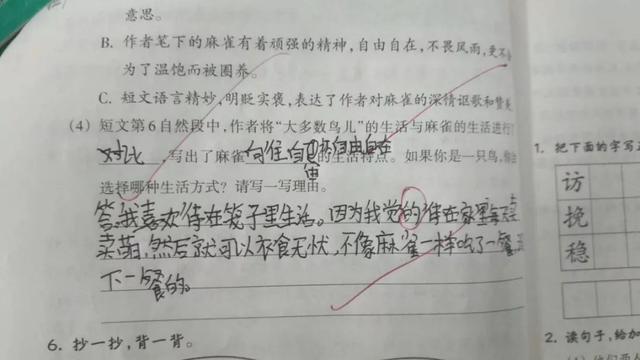 意思。
B. 作者笔下的麻雀有着顽强的精神，自由自在，不畏风雨，
为了温饱而被圈养。
C. 短文语言精妙，明贬实褒，表达了作者对麻雀的深情讴歌和赞美
(4) 短文第6自然段中，作者将“大多数鸟儿”的生活与麻雀的生活进行
对比，写出了麻雀 自由自在 的生活特点。如果你是一只鸟，你会
选择哪种生活方式？请写一写理由。
答:我喜欢待在笼子里生活。因为我觉的待在家里每天
卖萌,然后就可以衣食无忧,不像麻雀一样吃了一餐
下一餐的。
6. 抄一抄，背一背。
1. 把下面的字写
访
挽
稳
2. 读句子，给加